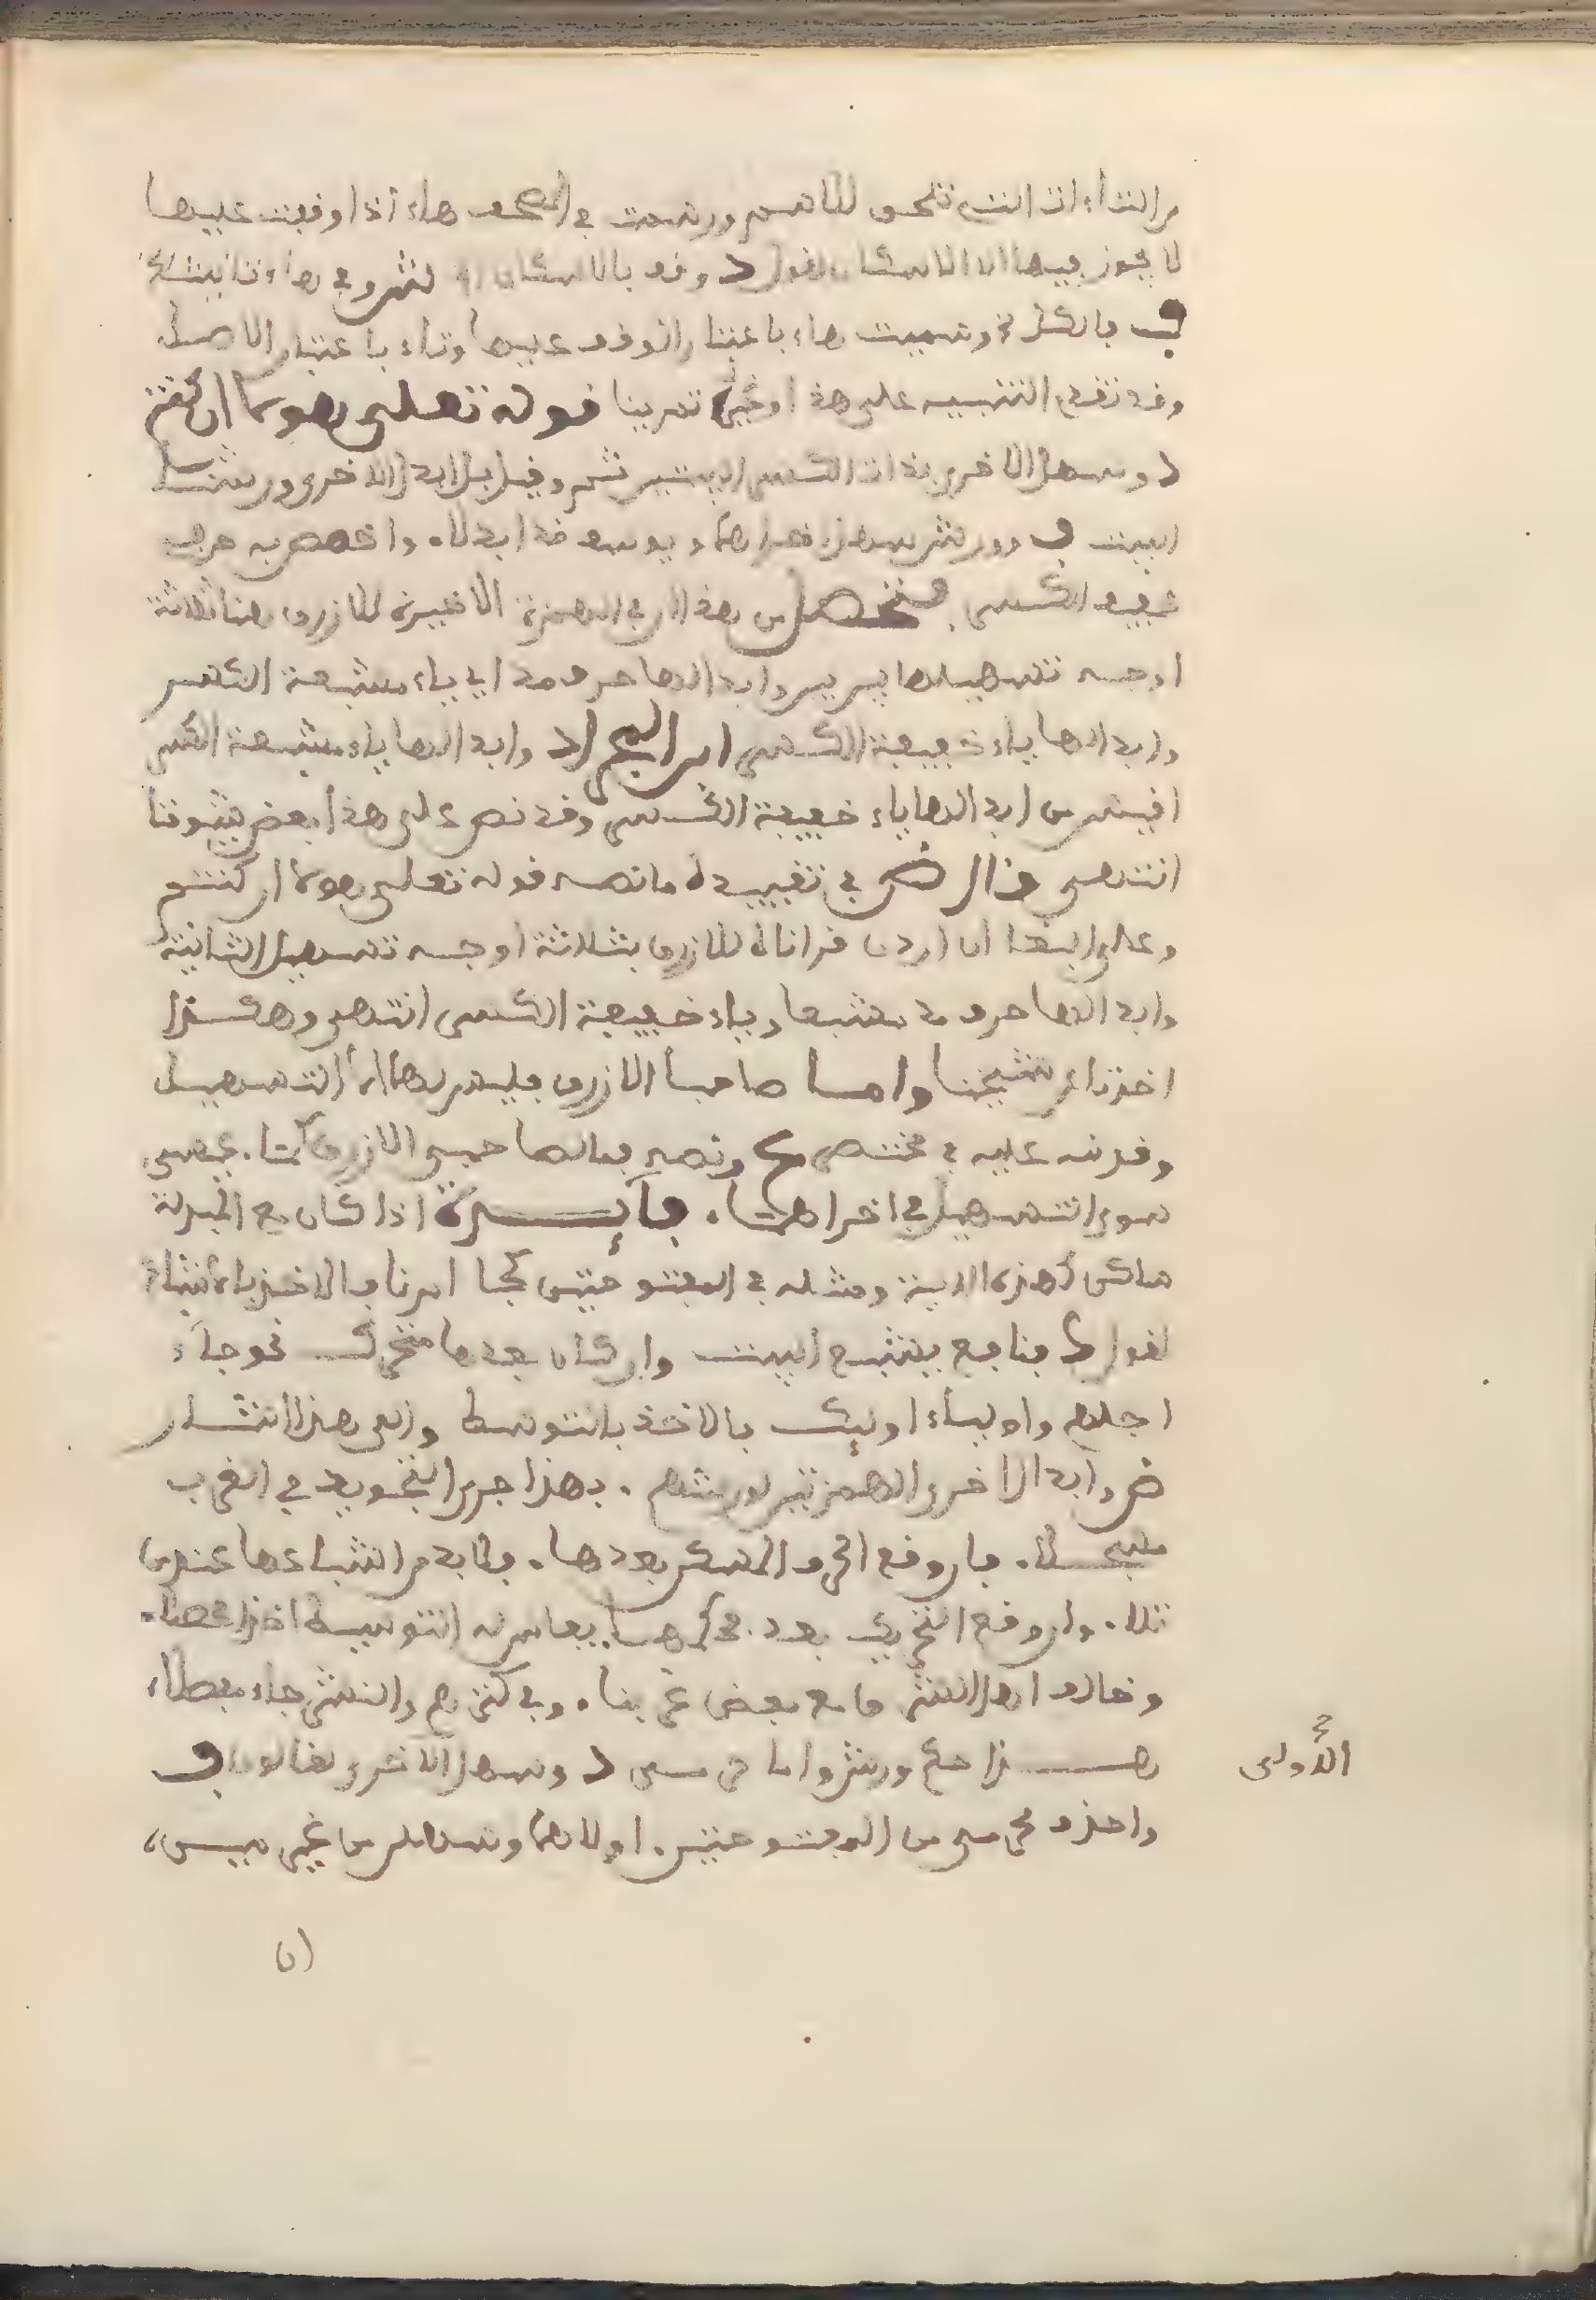 من التاءات التي تلحق للاسم ورسمت في المصحف هاء اذا وقفت عليها
لا يجوز فيها الا الاسكان لقول د وقف بالاسكان وفي هاء تانيث
ف بالكل وسميت هاء باعتبار الوقف عليها وتاء باعتبار الاصل
وقد تقدم التنبيه على هذا وغيره قريبا قوله تعلى هولا ان كنتم
د وسهل الاخرى بذات الكسر البيتين ثم وقيل بل ابدل الاخرى ورشنا
البيت ف وورش سهل اخراهما وبوسف قد ابدلا. واخصص به حرف
خفيف الكسر. فتحصل من هذا ان في الهمزة الاخيرة للازرق هنا ثلاثة
اوجه تسهيلها بين بين وابدالها حرف مد اي ياء مشبعة الكسر
وابدالها ياء خفيفة الكسر ابن المجراد وابدالها ياء مشبعة الكسر
اقيس من ابدالها ياء خفيفة الكسر وقد نص على هذا بعض شيوخنا
انتهى قال ض في تقييده ما نصه قوله تعلى هولا ان كنتم
وعلى البغا ان اردن قراناه للازرق بثلاثة اوجه تسهيل الثانية
وابدالها حرف مد مشبعا وياء خفيفة الكسر انتهى وهكذا
اخذنا عن شيخنا واما صاحبا الازرق فليس لهما الا التسهيل
وقد نبه عليه في مختصر ونصه فمالصاحبي الازرق كما. عيسى
سوى التسهيل في اخراهما. فائدة اذا كان مع المبدلة
ساكن كهذه الاية ومثله في المفتوحتين كجا امرنا فالاخذ بالاشباع
لقول ك فنافع يشبع البيت وان كان بعدها متحرك نحو جاء
اجلهم واولياء اوليك فالاخذ بالتوسط والى هذا اشار
ض وابدل اخرى الهمزتين لورشهم. بهذا جرى التجويد في الغرب
مسجلا. فان وقع الحرف المسكن بعدها. فلا بد من اشباعها عند من
تلا. وان وقع التحريك بعد محركها. بقاسنه التوسيط اخذا محصلا.
وخالف اهل النشر ما مع بعض غربنا. وفي كنزهم والنشر جاء مفصلا،
هذا حكم ورش واما قالون د وسهل الاخرى لقالون ف
الاولى صح
واحذف لحرمي من المفتوحتين. اولاهما وسهلن من غير مين،
(ن